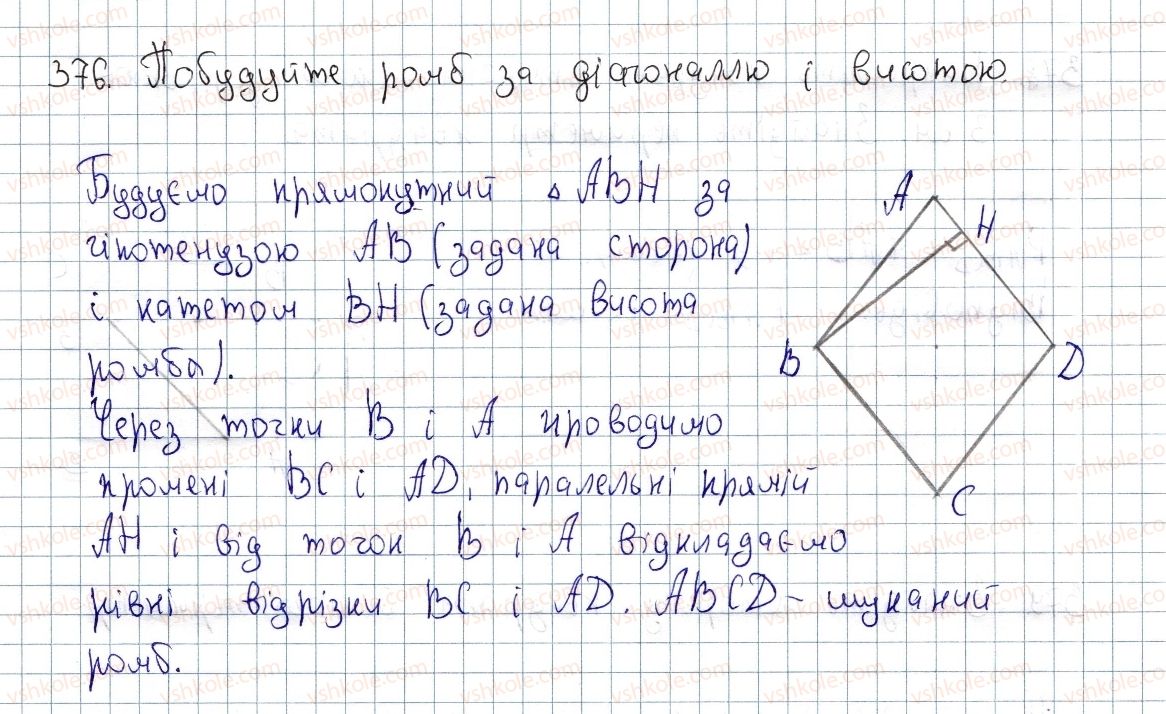 376. Побудуйте ромб за діагоналлю і висотою.
Будуємо прямокутний △ ABH за
гіпотенузою AB (задана сторона)
і катетом BH (задана висота
ромба).
Через точки B і A проводимо
промені BC і AD, паралельні прямій
AH і від точок B і A відкладаємо
рівні відрізки BC і AD. ABCD - шуканий
ромб.
A
H
B
D
C
vshkole.com